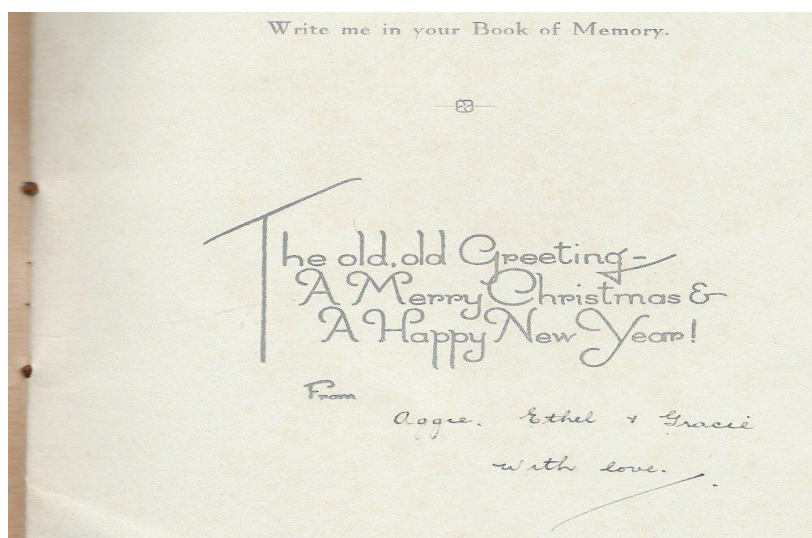 Write me in your Book of Memory.
The old, old Greeting-
A Merry Christmas &
A Happy New Year!
From
Aggie. Ethel & Gracie
with love.